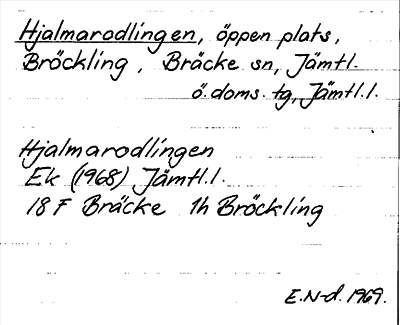 Hjalmarodlingen, öppen plats,
Bröckling, Bräcke sn, Jämtl.
ö. doms. tg, Jämtl. l.
Hjalmarodlingen
Ek (1968) Jämtl. l.
18 F Bräcke 1h Bröckling
E.N-d. 1969.